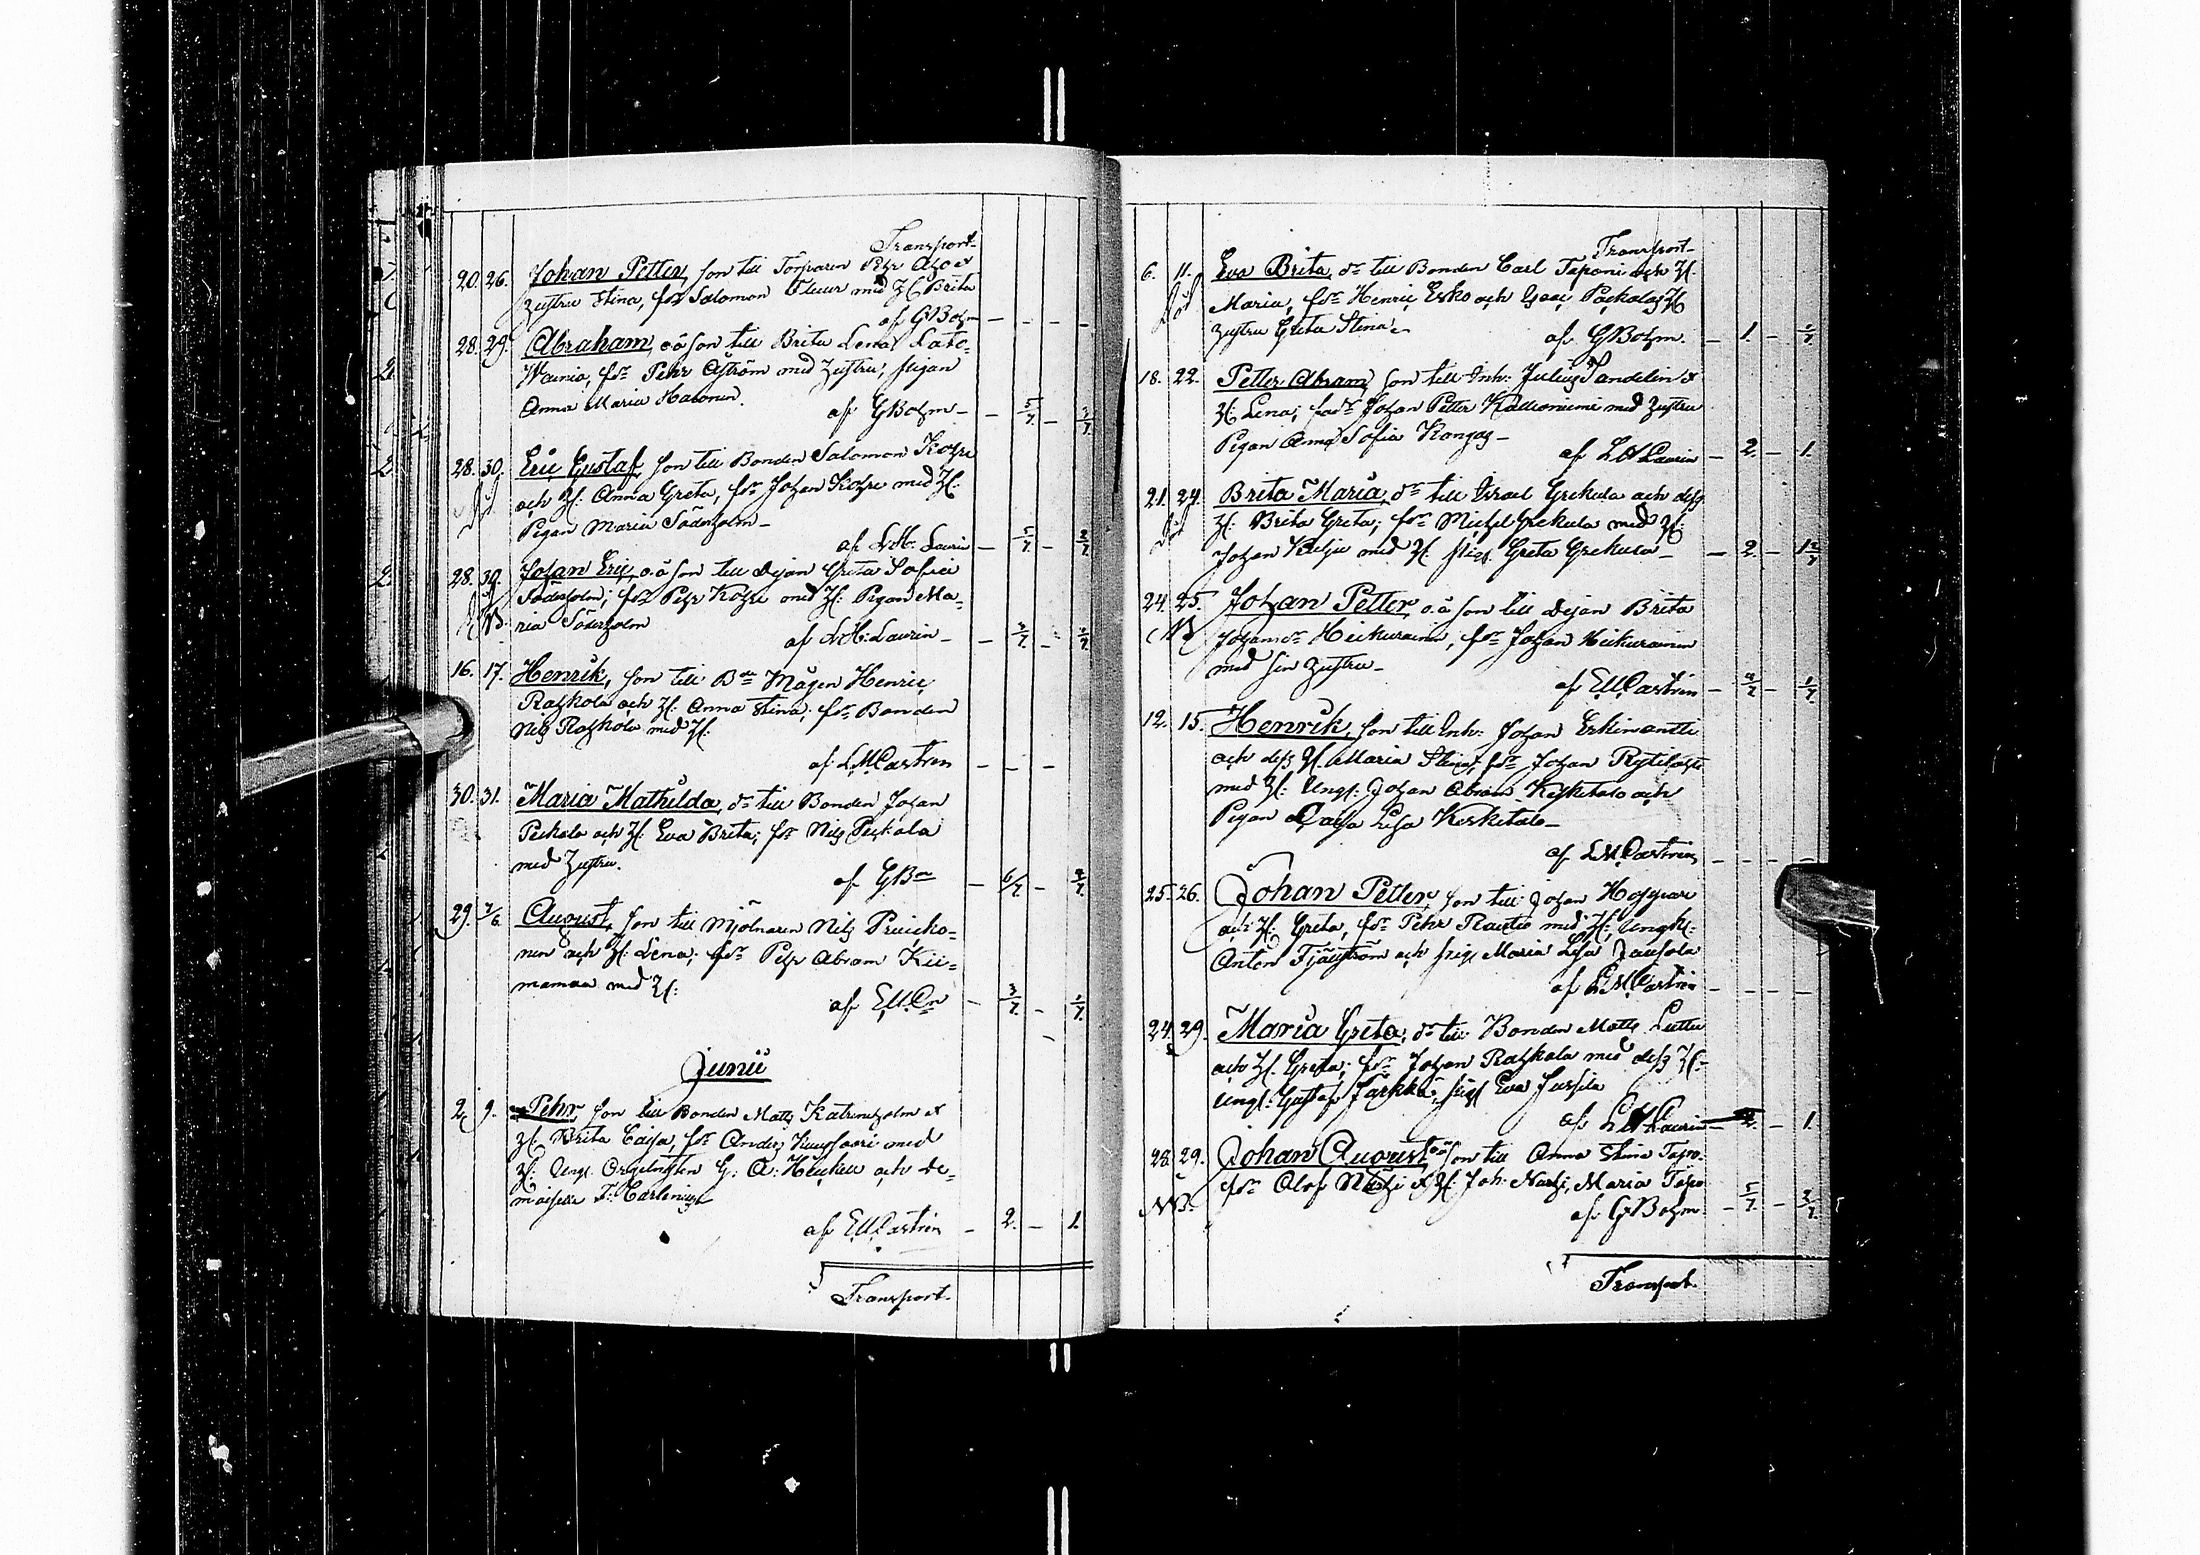 Transport
20. 26. Johan Petter, son till Torparen Pehr Aho &
hustru Stina, fdr Salomon Fluur med H: Brita
af GBohm
28. 29. Abraham, oä son till Brita Lena Lato-
Wainio, fdr Pehr Åström med hustru, pigan
Anna Maria Halonen.
af GBohm — 5/7 — 2/7
28. 30. Eric Gustaf, son till Bonden Salomon Kohre
död
och H: Anna Greta, fdr Johan Kohre med H:
Pigan Maria Söderholm —
af LH. Laurin — 5/7 — 2/7
28. 30. Johan Eric, oä son till Pijan Greta Sofia
Söderholm; fdr Pehr Kohre med H: Pigan Ma-
NB. ria Söderholm
af LH: Laurin —
16. 17. Henrik, son till Bde Mågen Henric
Rahkola och H: Anna Stina; fdr Bonden
Nils Rahkola med H:
af LMCastren — — —
30. 31. Maria Mathilda, dr till Bonden Johan
Peckala och H: Eva Brita; fdr Nils Peckala
med hustru.
af GBm — 6/7 — 2/7
29. 2/6 August, son till Mjölnaren Nils
nen och H: Lena; fdr Pehr Abram Kii-
mamaa med H:
af EMCn — 3/7 — 1/7
Junii
2. 9. Pehr, son till Bonden Matts Katrineholm &
H: Brita Caisa, fdr Anders med
H: Ungk. Orgelnisten G: A: och De-
moiselle F: Carlenius
af EMCastren — 2. — 1.
Transport.
Transport
6. 11. Eva Brita, dr till Bonden Carl Taponi och H:
död
Maria, fdr Henric Erko och Isaac Packalas H
hustru Greta Stina.
af GBohm — 1. —
18. 22. Petter Abram, son till Inh: Julius Sandelin &
H: Lena; fadr Johan Petter Kallioniemi med hustru
Pigan Anna Sofia Kangas —
af LH Laurin — 2. — 1.
21. 24. Brita Maria, dr till Israel Grekula och dess
död
H: Brita Greta; fdr Michel Grekula med H:
Johan med H: pig: Greta Grekula — — 2. —
24. 25. Johan Petter, oä son till Pijan Brita
NB Johansdr Heikurainen, fdr Johan Heikurainen
med sin hustru —
af EMCastren — 4/7 — 1/7
12. 15. Henrik, son till Inh: Johan Erkinantti
och dess H: Maria Stina; fdr Johan Rytilahti
med H: Ungk: Johan Abram Keskitalo och
Pigan Caisa Lisa Keskitalo —
af LMCastren — — —
25. 26. Johan Petter, son till Johan Hoppari
och H: Greta, fdr Pehr Rautio med H:, Ungk:
Anton och pig: Maria Lisa
af LMCastren — — —
24. 29. Maria Greta; dr till Bonden Matts Luttu
och H: Greta; fdr Johan Rahkola med dess H:
Ungk: Gustaf Jarkko, pig: Eva Jussila
af LH Laurin — 2. — 1.
28. 29. Johan August, oä son till Anna Stina Tapo-
fdr Olof Nartzi & H: Joh: Nartzi, Maria Tapo
NB.
af GBohm — 5/7 — 2/7
Transport.